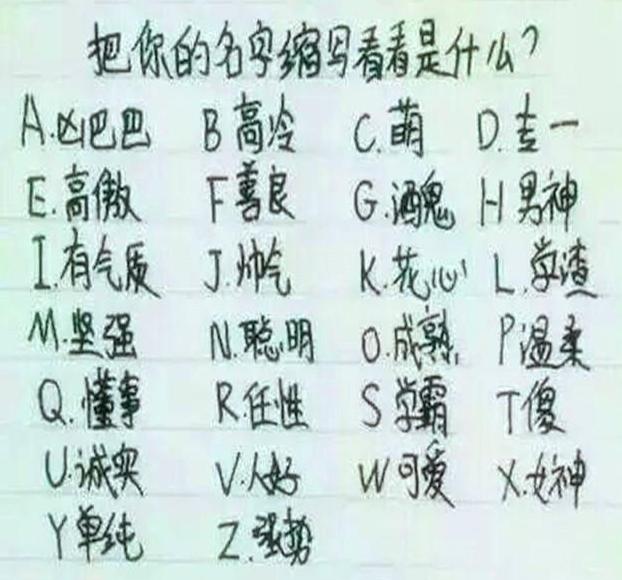 把你的名字缩写看看是什么?
A.凶巴巴 B高冷 C.萌 D.专一
E.高傲 F善良 G.酒鬼 H男神
I.有气质 J.帅气 K.花心 L.学渣
M.坚强 N.聪明 O.成熟 P温柔
Q.懂事 R.任性 S学霸 T傻
U.诚实 V.人好 W可爱 X.女神
Y单纯 Z.强势